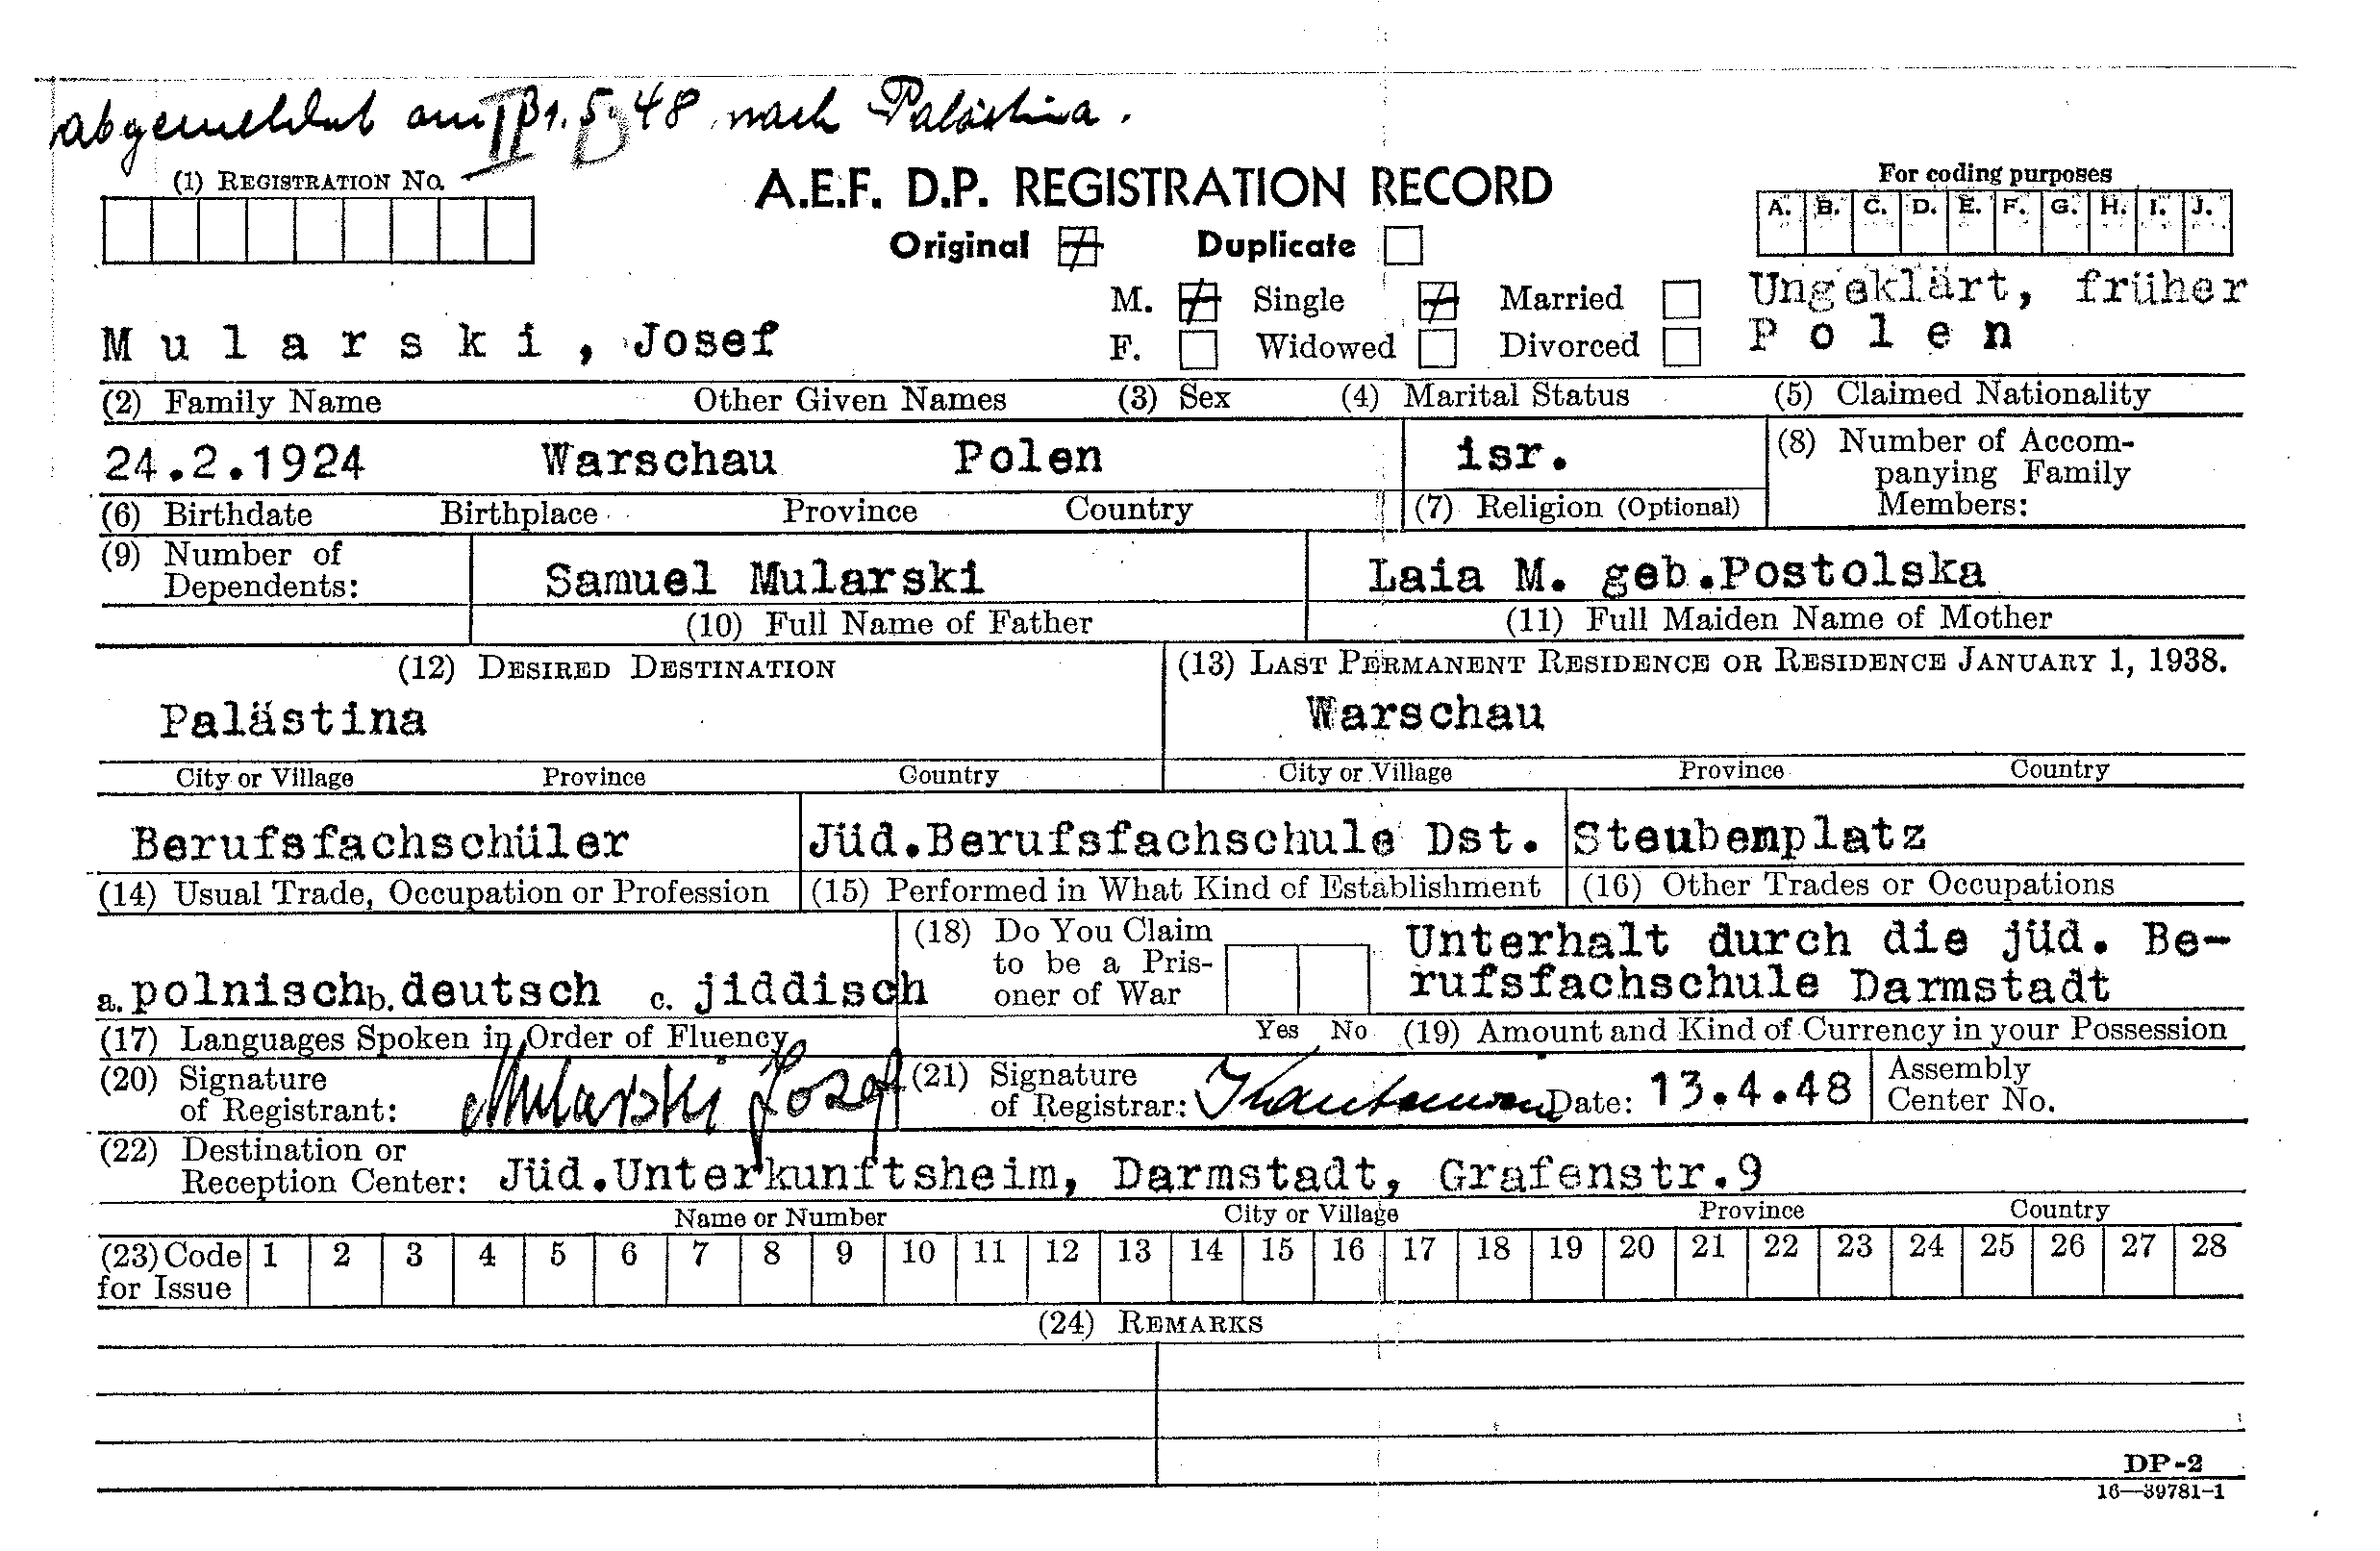 abgemeldet am 31.5.48 nach Palästina.
(1) REGISTRATION NO.
A.E.F. D.P. REGISTRATION RECORD
For coding purposes
A. B. C. D. E. F. G. H. I. J.
Original Duplicate
M. Single Married
Ungeklärt, früher
Mularski, Josef
F. Widowed Divorced
Polen
(2) Family Name Other Given Names (3) Sex (4) Marital Status (5) Claimed Nationality
24.2.1924 Warschau Polen isr.
(8) Number of Accom-
panying Family
Members:
(6) Birthdate Birthplace Province Country (7) Religion (Optional)
(9) Number of
Dependents:
Samuel Mularski Laia M. geb.Postolska
(10) Full Name of Father (11) Full Maiden Name of Mother
(12) DESIRED DESTINATION (13) LAST PERMANENT RESIDENCE OR RESIDENCE JANUARY 1, 1938.
Palästina Warschau
City or Village Province Country City or Village Province Country
Berufsfachschüler Jüd.Berufsfachschule Dst. Steubenplatz
(14) Usual Trade, Occupation or Profession (15) Performed in What Kind of Establishment (16) Other Trades or Occupations
(18) Do You Claim
to be a Pris-
oner of War
Unterhalt durch die jüd. Be-
rufsfachschule Darmstadt
a. polnisch b. deutsch c. jiddisch
(17) Languages Spoken in Order of Fluency Yes No (19) Amount and Kind of Currency in your Possession
(20) Signature
of Registrant: Mularski Josef
(21) Signature
of Registrar: Date: 13.4.48
Assembly
Center No.
(22) Destination or
Reception Center: Jüd.Unterkunftsheim, Darmstadt, Grafenstr.9
Name or Number City or Village Province Country
(23) Code
for Issue
1 2 3 4 5 6 7 8 9 10 11 12 13 14 15 16 17 18 19 20 21 22 23 24 25 26 27 28
(24) REMARKS
DP-2
16—39781-1